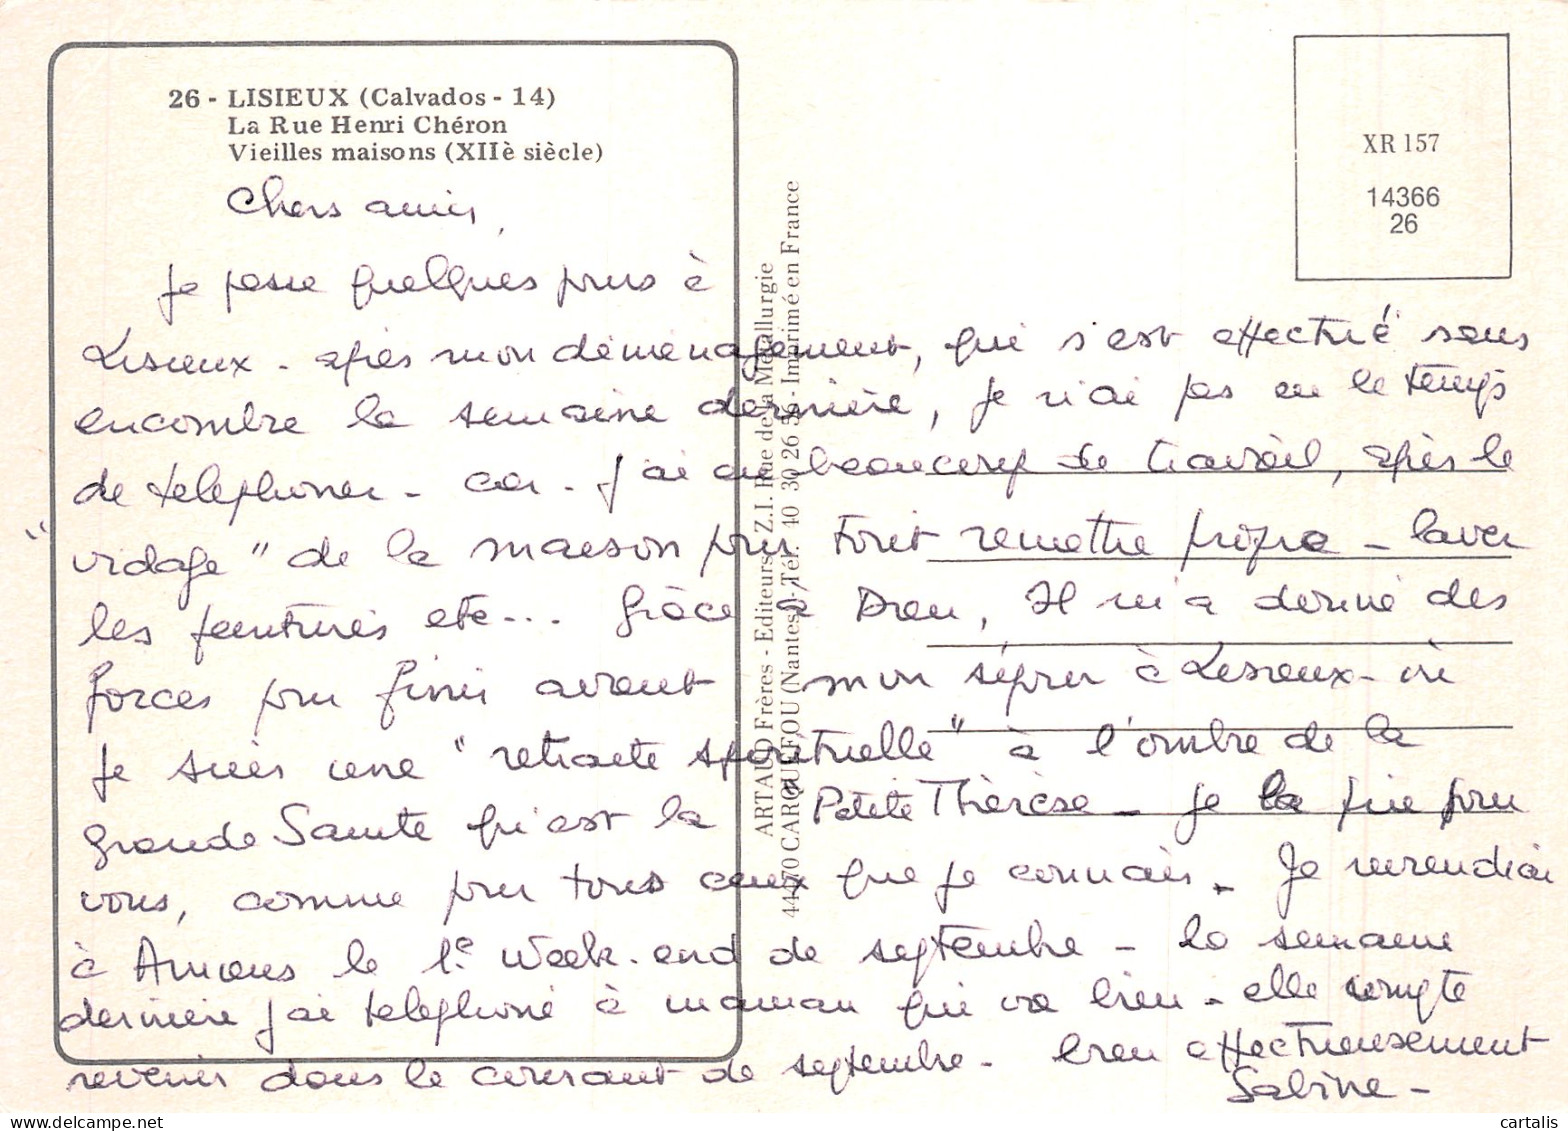 26 - LISIEUX (Calvados - 14)
La Rue Henri Chéron
Vieilles maisons (XIIè siècle)
XR 157
14366
26
ARTAUD Frères - Editeurs - Z.I. Rue de la Métallurgie
44470 CARQUEFOU (Nantes) - Tél. 40 30 26 5 - Imprimé en France
Chers amis,
Je passe quelques jours à
Lisieux - après mon déménagement, qui s'est effectué sans
encombre la semaine dernière, je n'ai pas eu le temps
de telephoner - car - j'ai eu beaucoup de travail, après le
"vidage" de la maison pour tout remettre propre - laver
les peintures etc... Grâce à Dieu, Il m'a donné des
forces pour finir avant mon séjour à Lisieux - où
je suis une "retraite spirituelle" à l'ombre de la
grande Sainte qu'est la Petite Thérèse - je la prie pour
vous, comme pour tous ceux que je connais - Je reviendrai
à Amiens le 1e week-end de septembre - la semaine
dernière j'ai telephoné à maman qui va bien - elle compte
revenir dans le courant de septembre - bien affectueusement
Sabine -
cartalis